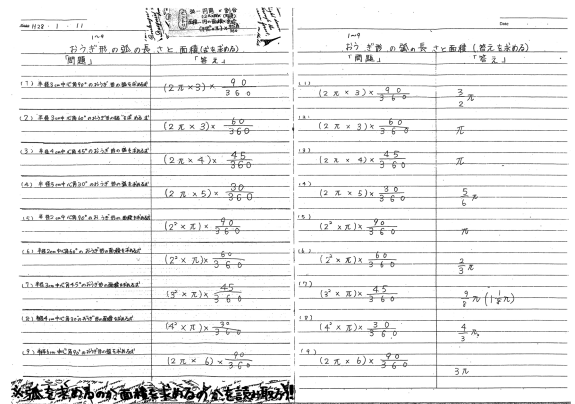 H28・1・11
弧…円周の割合
1〜9
おうぎ形の弧の長さと面積(式を求める)
「問題」 「答え」
(1) 半径3cm中心角90°のおうぎ形の弧を求める式 (2π×3)×90/360
(2) 半径3cm中心角60°のおうぎ形の弧を求める式 (2π×3)×60/360
(3) 半径4cm中心角45°のおうぎ形の弧を求める式 (2π×4)×45/360
(4) 半径5cm中心角30°のおうぎ形の弧を求める式 (2π×5)×30/360
(5) 半径2cm中心角90°のおうぎ形の面積を求める式 (2²×π)×90/360
(6) 半径2cm中心角60°のおうぎ形の面積を求める式 (2²×π)×60/360
(7) 半径3cm中心角45°のおうぎ形の面積を求める式 (3²×π)×45/360
(8) 半径4cm中心角30°のおうぎ形の面積を求める式 (4²×π)×30/360
(9) 半径6cm中心角90°のおうぎ形の弧を求める式 (2π×6)×90/360
※弧を求めるのか、面積を求めるのかを読み取る!!
Date
1〜9
おうぎ形の弧の長さと面積(答えを求める)
「問題」 「答え」
(1) (2π×3)×90/360 3/2π
(2) (2π×3)×60/360 π
(3) (2π×4)×45/360 π
(4) (2π×5)×30/360 5/6π
(5) (2²×π)×90/360 π
(6) (2²×π)×60/360 2/3π
(7) (3²×π)×45/360 9/8π (1 1/8π)
(8) (4²×π)×30/360 4/3π
(9) (2π×6)×90/360 3π